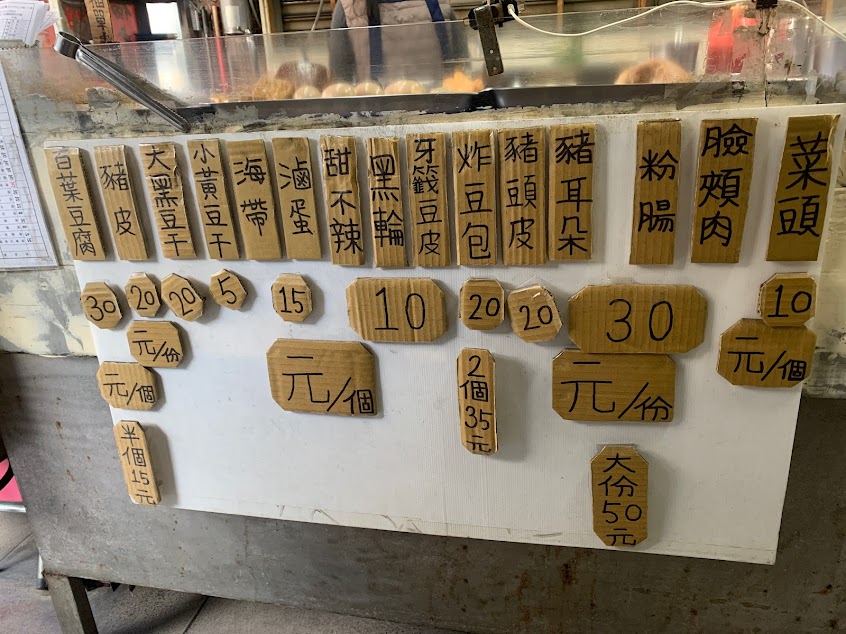 百葉豆腐
豬皮
大黑豆干
小黃豆干
海帶
滷蛋
甜不辣
黑輪
牙籤豆皮
炸豆包
豬頭皮
豬耳朵
粉腸
臉頰肉
菜頭
30
20
20
5
15
10
20
20
30
10
元/份
元/個
元/個
2個35元
元/份
元/個
半個15元
大份50元